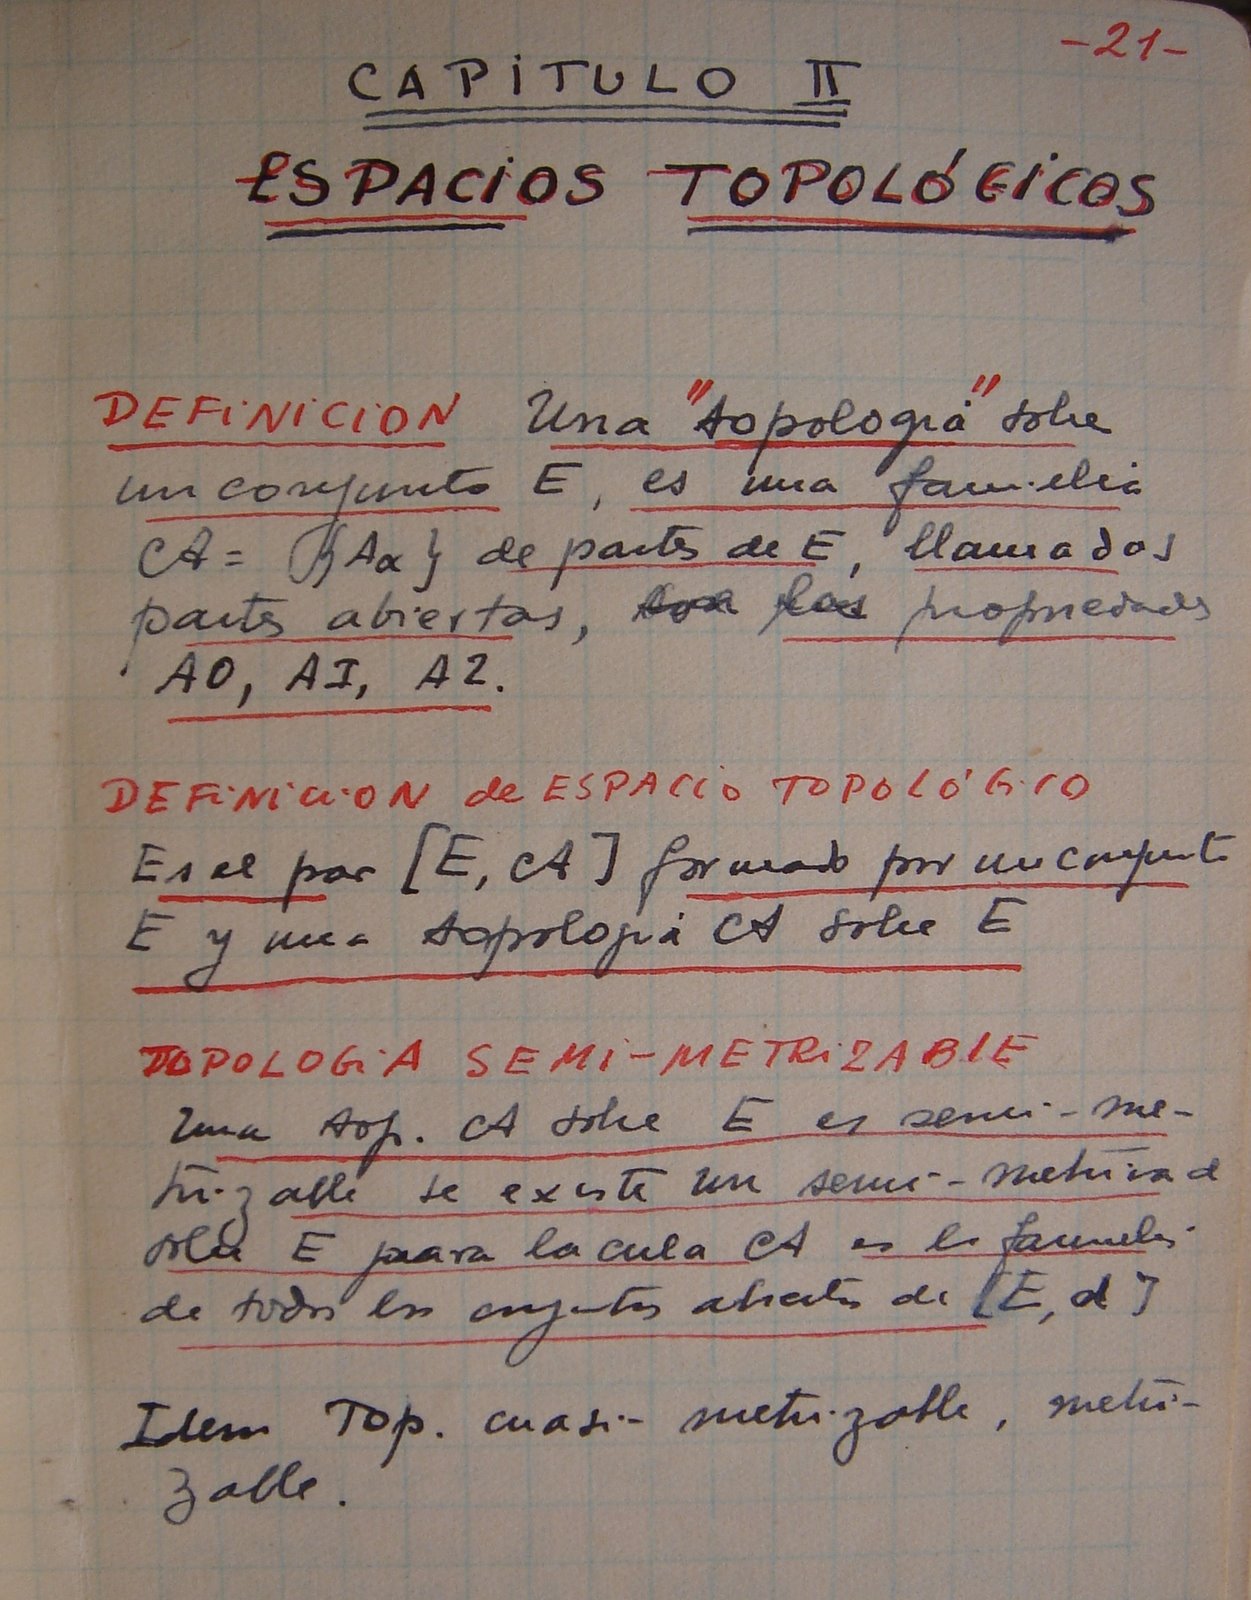 -21-
CAPITULO II
ESPACIOS TOPOLÓGICOS
DEFINICION Una "topología" sobre
un conjunto E, es una familia
CA = {Aα} de partes de E, llamados
partes abiertas, con las propiedades
A0, AI, A2.
DEFINICION de ESPACIO TOPOLÓGICO
Es el par [E, CA] formado por un conjunto
E y una topología CA sobre E
TOPOLOGIA SEMI-METRIZABLE
Una top. CA sobre E es semi-me-
trizable se existe una semi-metrica d
sobre E para la cula CA es la familia
de todos los conjuntos abiertos de [E, d]
Idem Top. cuasi-metrizable, metri-
zable.